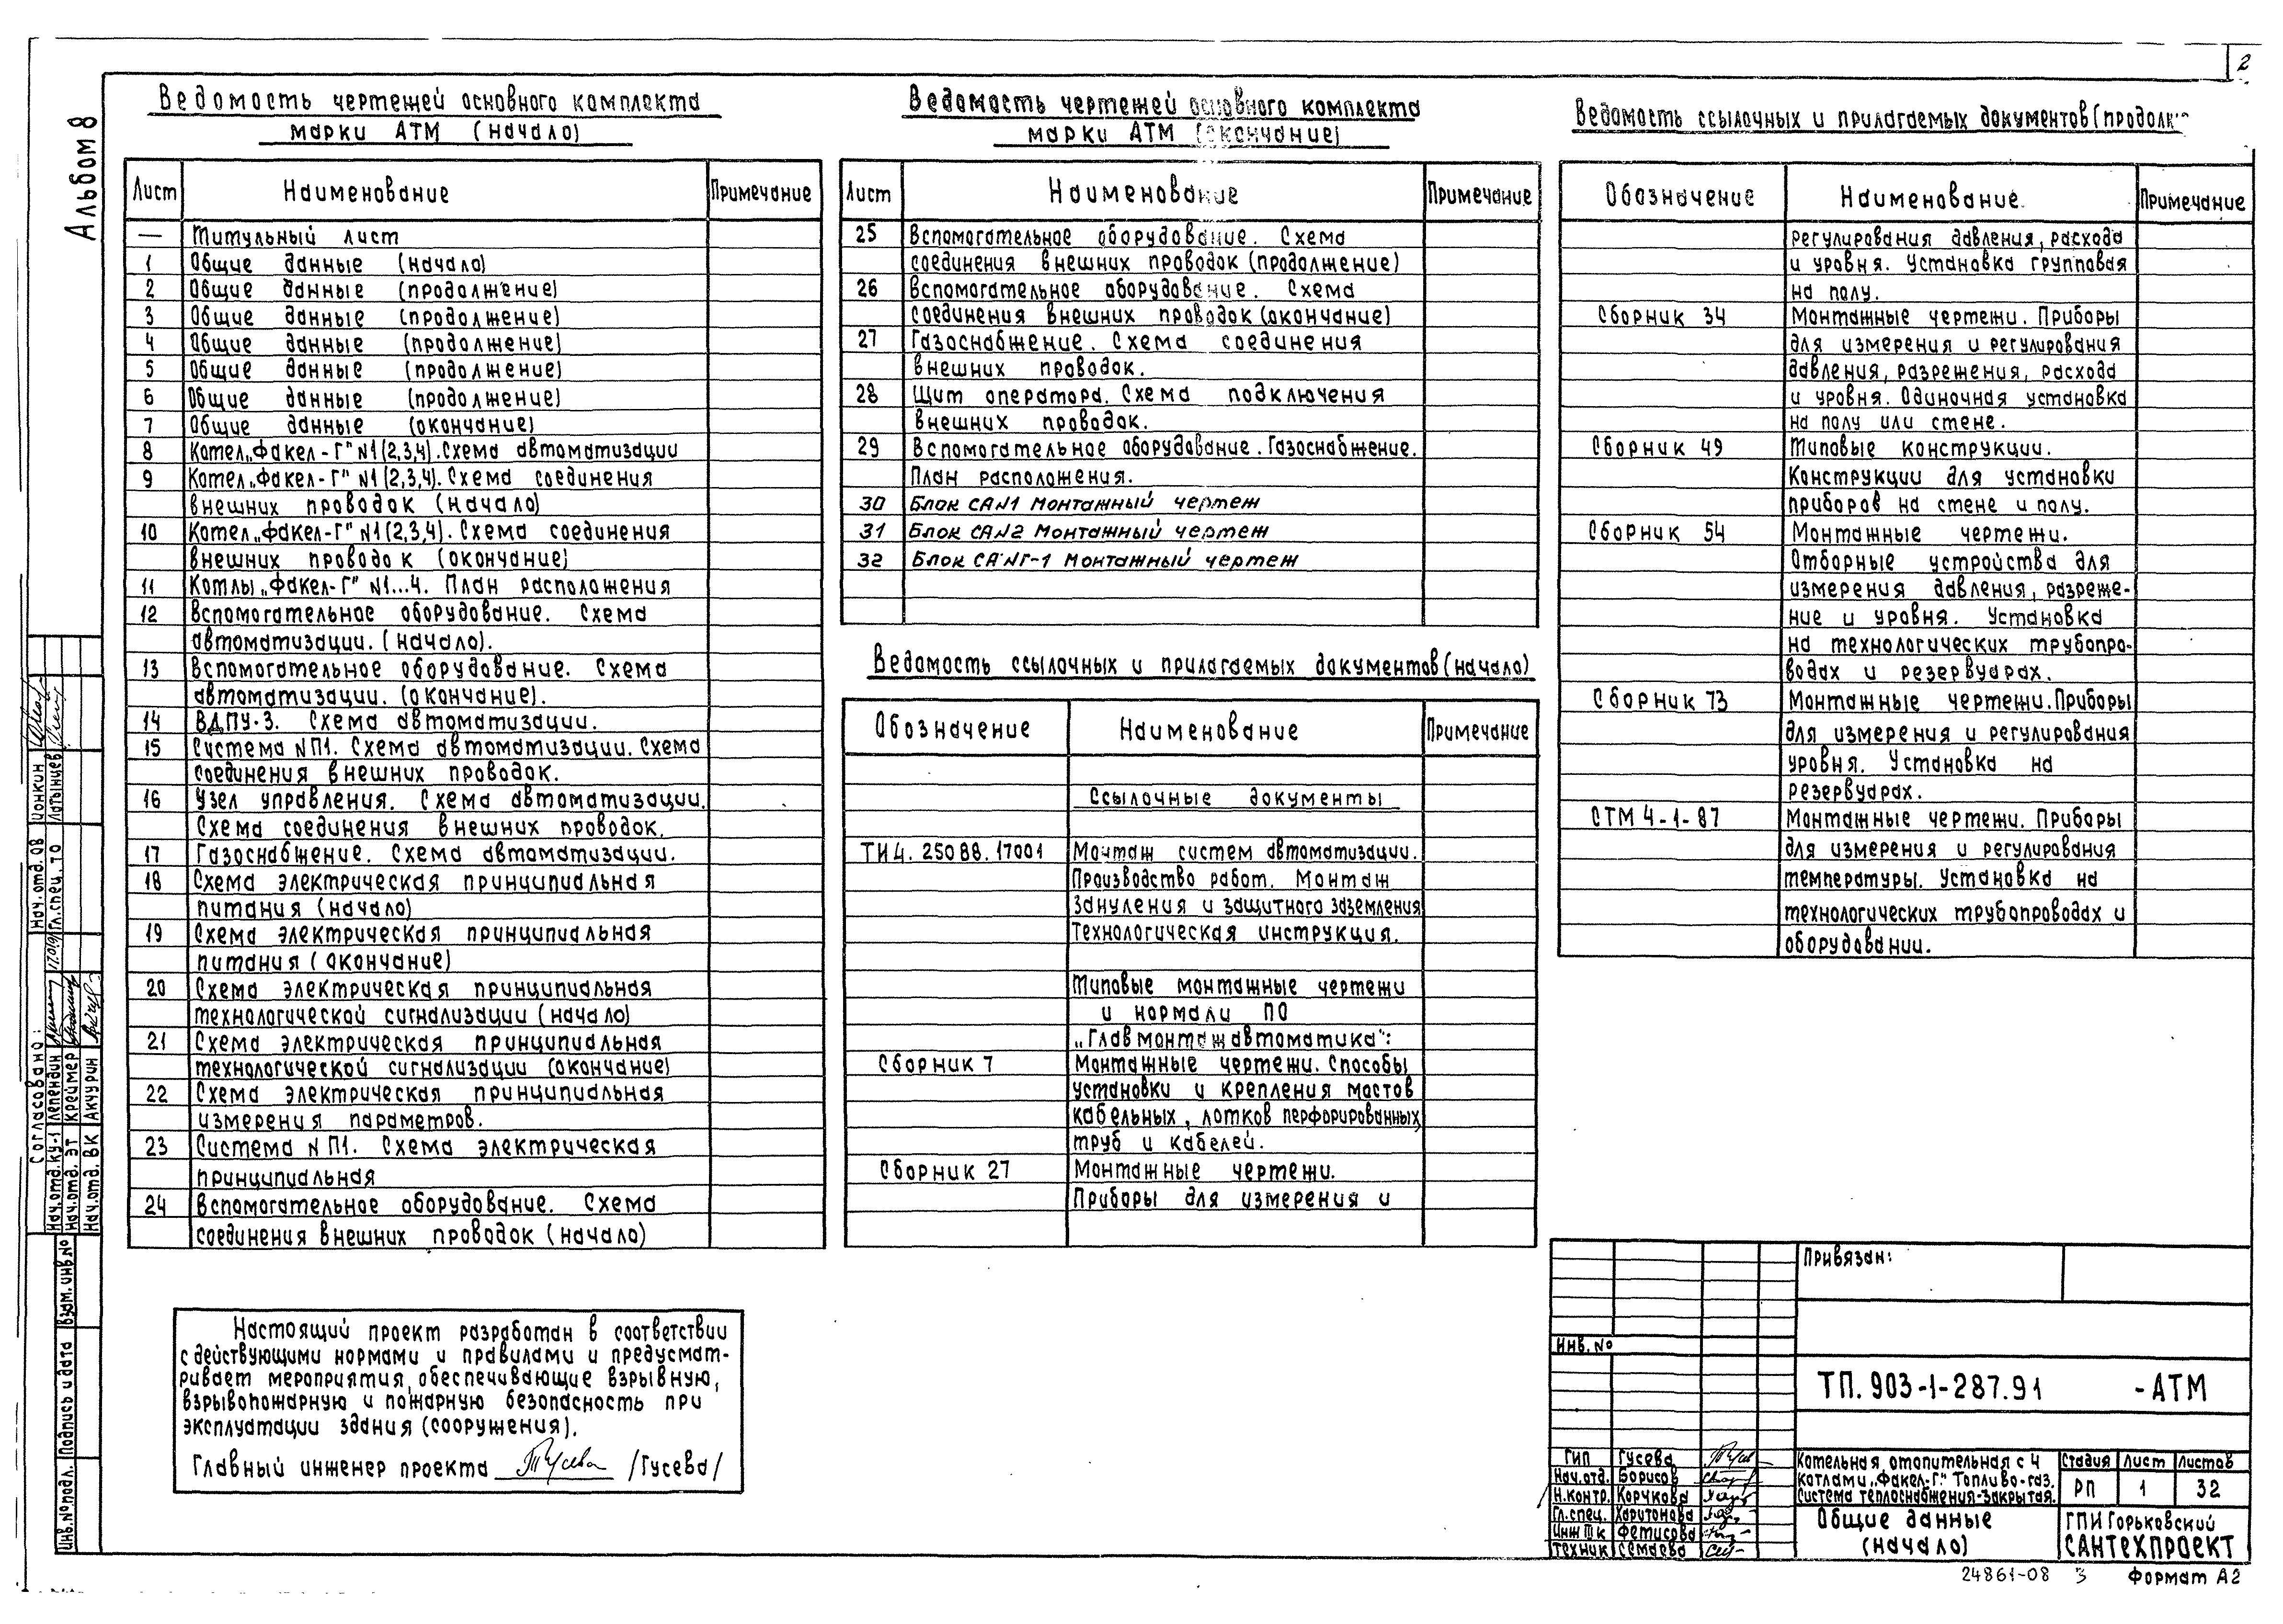 2
Альбом 8
Ведомость чертежей основного комплекта
марки АТМ (начало)
Лист Наименование Примечание
— Титульный лист
1 Общие данные (начало)
2 Общие данные (продолжение)
3 Общие данные (продолжение)
4 Общие данные (продолжение)
5 Общие данные (продолжение)
6 Общие данные (продолжение)
7 Общие данные (окончание)
8 Котел „Факел-Г" №1(2,3,4). Схема автоматизации
9 Котел „Факел-Г" №1(2,3,4). Схема соединения
внешних проводок (начало)
10 Котел „Факел-Г" №1(2,3,4). Схема соединения
внешних проводок (окончание)
11 Котлы „Факел-Г" №1...4. План расположения
12 Вспомогательное оборудование. Схема
автоматизации. (начало).
13 Вспомогательное оборудование. Схема
автоматизации. (окончание).
14 ВДПУ-3. Схема автоматизации.
15 Система №П1. Схема автоматизации. Схема
соединения внешних проводок.
16 Узел управления. Схема автоматизации.
Схема соединения внешних проводок.
17 Газоснабжение. Схема автоматизации.
18 Схема электрическая принципиальная
питания (начало)
19 Схема электрическая принципиальная
питания (окончание)
20 Схема электрическая принципиальная
технологической сигнализации (начало)
21 Схема электрическая принципиальная
технологической сигнализации (окончание)
22 Схема электрическая принципиальная
измерения параметров.
23 Система №П1. Схема электрическая
принципиальная
24 Вспомогательное оборудование. Схема
соединения внешних проводок (начало)
Ведомость чертежей основного комплекта
марки АТМ (окончание)
Лист Наименование Примечание
25 Вспомогательное оборудование. Схема
соединения внешних проводок (продолжение)
26 Вспомогательное оборудование. Схема
соединения внешних проводок (окончание)
27 Газоснабжение. Схема соединения
внешних проводок.
28 Щит оператора. Схема подключения
внешних проводок.
29 Вспомогательное оборудование. Газоснабжение.
План расположения.
30 Блок СА№1 Монтажный чертеж
31 Блок СА№2 Монтажный чертеж
32 Блок СА№Г-1 Монтажный чертеж
Ведомость ссылочных и прилагаемых документов (начало)
Обозначение Наименование Примечание
Ссылочные документы
ТИ4.25088.17001 Монтаж систем автоматизации.
Производство работ. Монтаж
зануления и защитного заземления
Технологическая инструкция.
Типовые монтажные чертежи
и нормали ПО
„Главмонтажавтоматика":
Сборник 7 Монтажные чертежи. Способы
установки и крепления мостов
кабельных, лотков перфорированных,
труб и кабелей.
Сборник 27 Монтажные чертежи.
Приборы для измерения и
Ведомость ссылочных и прилагаемых документов (продолж
Обозначение Наименование. Примечание
регулирования давления, расхода
и уровня. Установка групповая
на полу.
Сборник 34 Монтажные чертежи. Приборы
для измерения и регулирования
давления, разрежения, расхода
и уровня. Одиночная установка
на полу или стене.
Сборник 49 Типовые конструкции.
Конструкции для установки
приборов на стене и полу.
Сборник 54 Монтажные чертежи.
Отборные устройства для
измерения давления, разреже-
ние и уровня. Установка
на технологических трубопро-
водах и резервуарах.
Сборник 73 Монтажные чертежи. Приборы
для измерения и регулирования
уровня. Установка на
резервуарах.
СТМ 4-1-87 Монтажные чертежи. Приборы
для измерения и регулирования
температуры. Установка на
технологических трубопроводах и
оборудовании.
Настоящий проект разработан в соответствии
с действующими нормами и правилами и предусмат-
ривает мероприятия, обеспечивающие взрывную,
взрывопожарную и пожарную безопасность при
эксплуатации здания (сооружения).
Главный инженер проекта /Гусева/
Согласовано:
Нач.отд. ОВ Цонкин
Гл. спец. ТО Латынцев
Нач.отд. КУ-1 Лепендин
Нач.отд. ЭТ Креймер
Нач.отд. ВК Акчурин
Взам. инв.№
Подпись и дата
Инв.№ подл.
Привязан:
Инв. №
ТП. 903-1-287.91 -АТМ
ГИП Гусева
Нач.отд. Борисов
Н.контр. Корчкова
Гл.спец. Харитонова
Инж IIк Фетисова
Техник Семаева
Котельная отопительная с 4
котлами „Факел-Г". Топливо-газ.
Система теплоснабжения-закрытая.
Стадия Лист Листов
РП 1 32
Общие данные
(начало)
ГПИ Горьковский
САНТЕХПРОЕКТ
24861-08 3 Формат А2